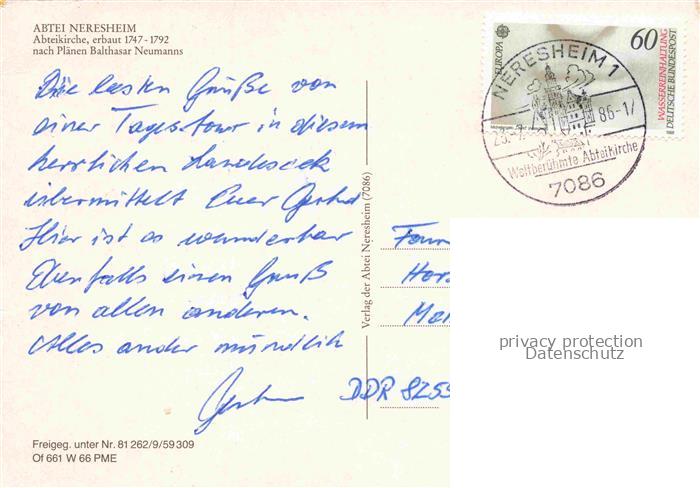 ABTEI NERESHEIM
Abteikirche, erbaut 1747-1792
nach Plänen Balthasar Neumanns
Die besten Grüße von
einer Tagestour in diesem
herrlichen Landeseck
übermittelt Euer Gerhard
Hier ist es wunderbar
Ebenfalls einen Gruß
von allen anderen.
Alles andere mündlich
Verlag der Abtei Neresheim (7086)
EUROPA
60
WASSERREINHALTUNG
DEUTSCHE BUNDESPOST
NERESHEIM 1
86-17
Weltberühmte Abteikirche
7086
Fam
Hor
DDR 825
privacy protection
Datenschutz
Freigeg. unter Nr. 81 262/9/59 309
Of 661 W 66 PME